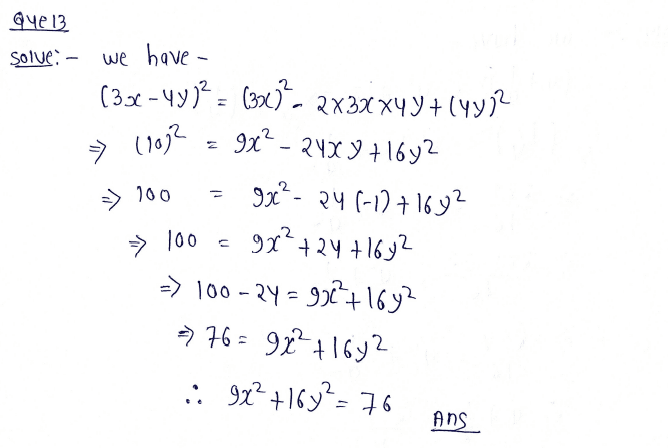 Que 13
Solve:- we have -
(3x-4y)² = (3x)² - 2×3x×4y + (4y)²
⇒ (10)² = 9x² - 24xy + 16y²
⇒ 100 = 9x² - 24(-1) + 16y²
⇒ 100 = 9x² + 24 + 16y²
⇒ 100 - 24 = 9x² + 16y²
⇒ 76 = 9x² + 16y²
∴ 9x² + 16y² = 76
Ans